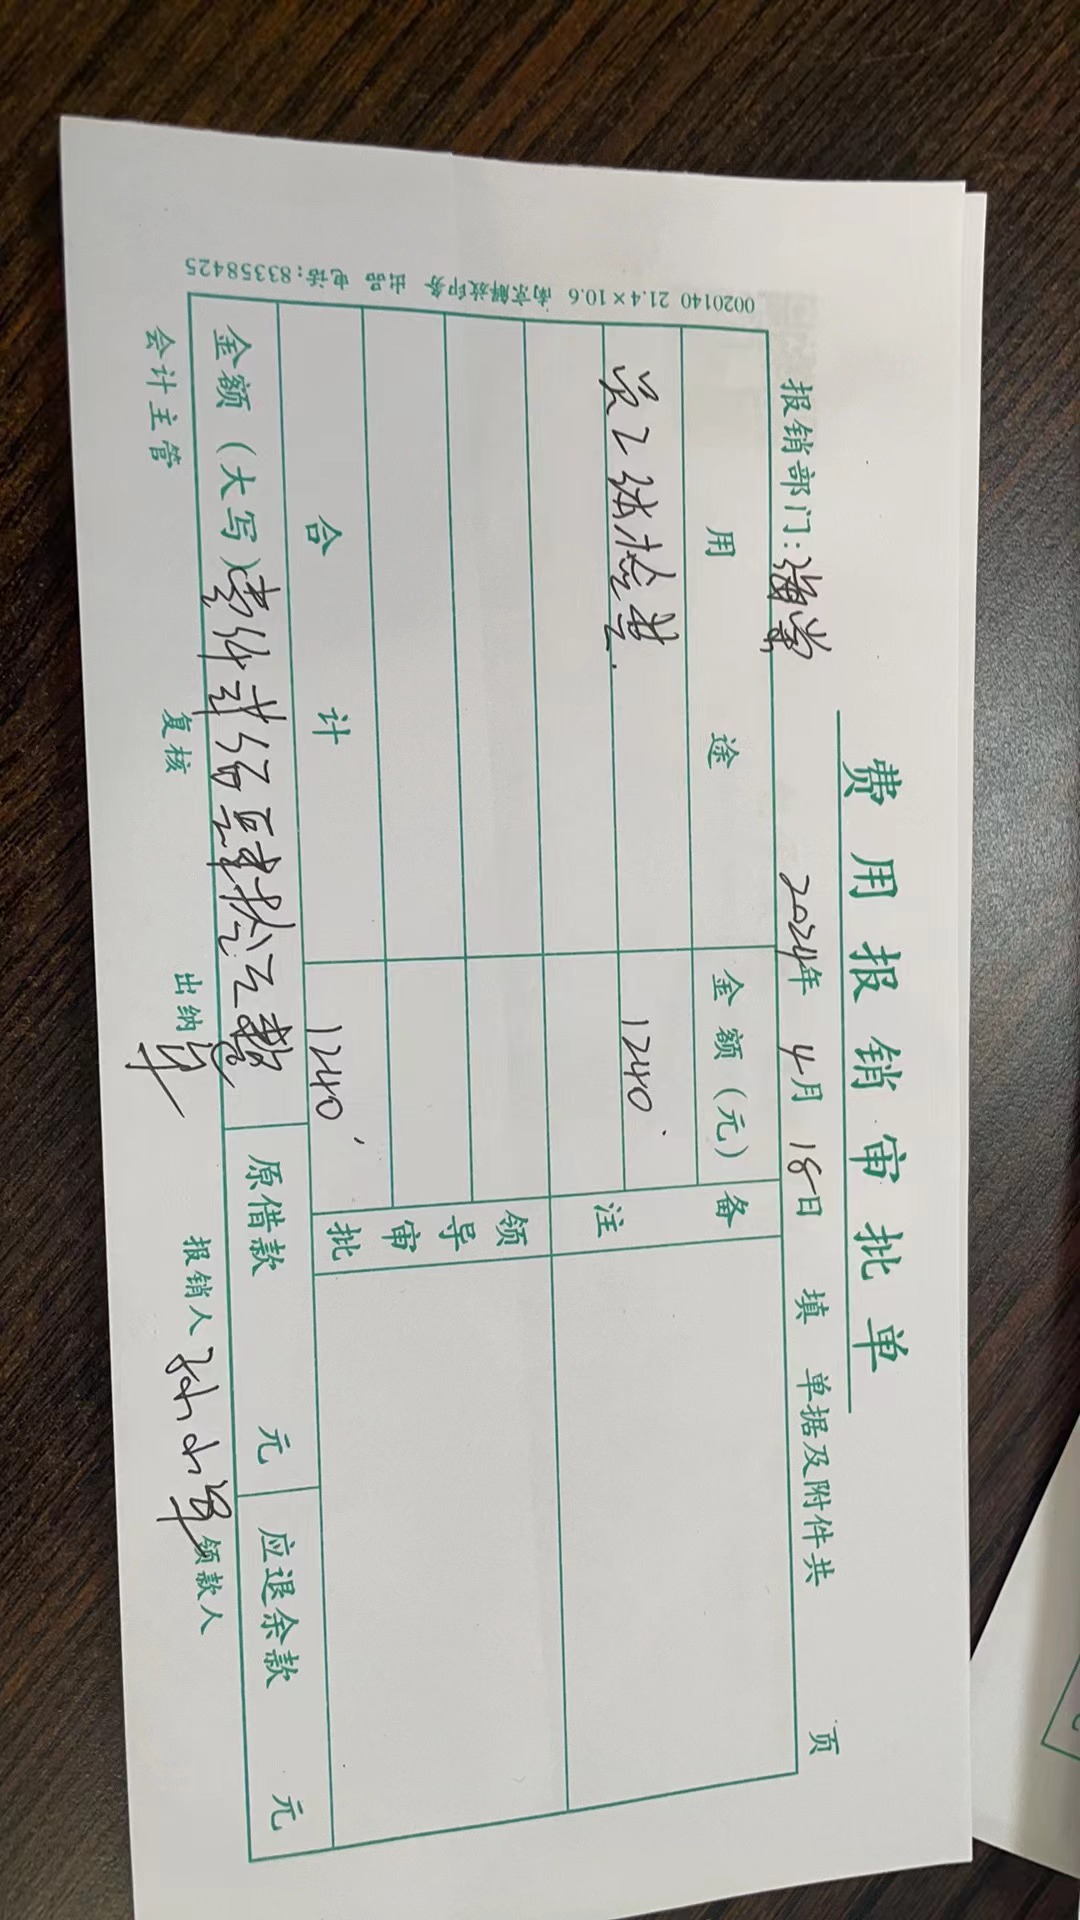 费用报销审批单
报销部门:海棠 2024年 4月 18日 填 单据及附件共 页
用途 金额(元) 备注
员工体检费. 1240.
领导审批
合计 1240
金额(大写)壹仟贰佰肆拾元整 原借款 元 应退余款 元
会计主管 复核 出纳 报销人 领款人
0020140 21.4×10.6 南京解放印务 出品 电话:83358425